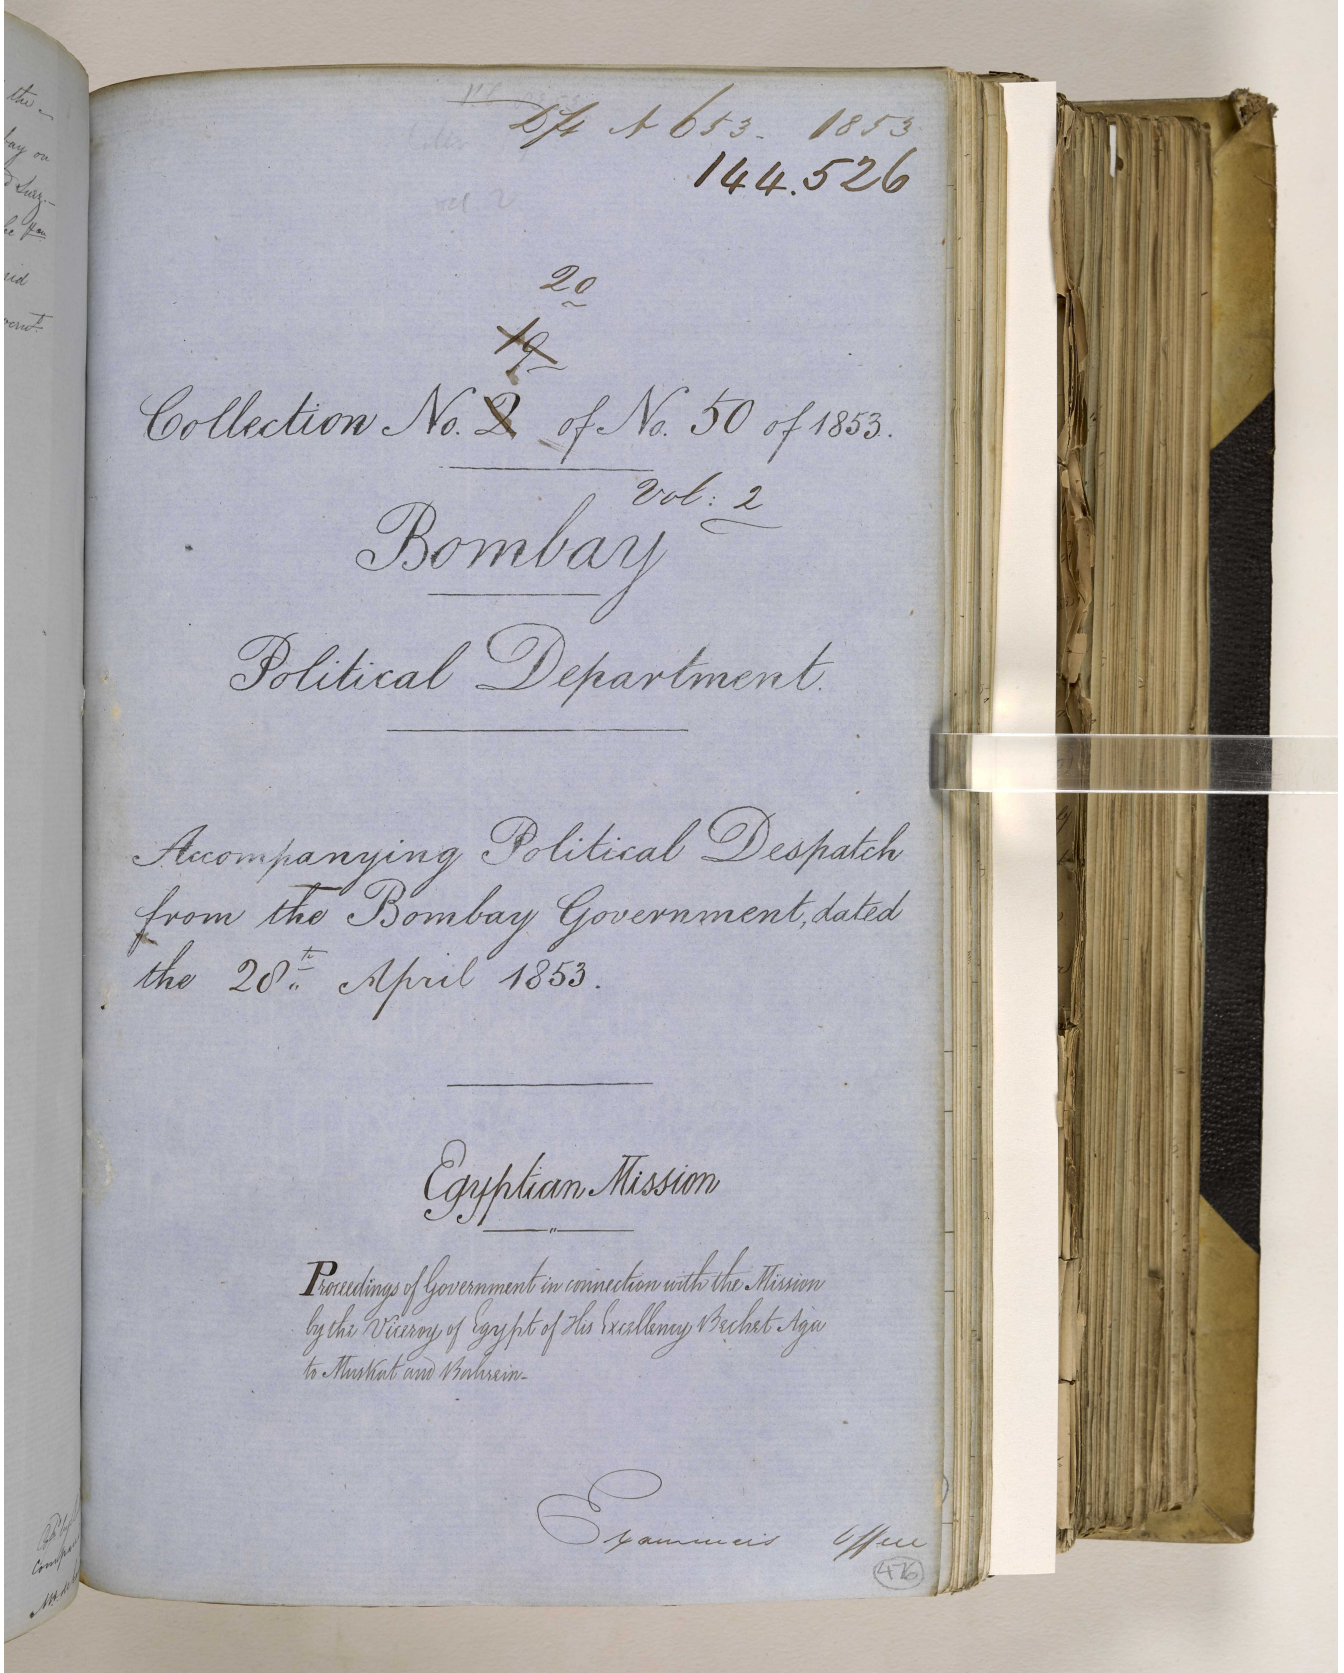 the
lay on
Suez
the Hon
said
Dft No 653. 1853
144.526
20
19
Collection No. 2 of No. 50 of 1853.
Vol: 2
Bombay
Political Department.
Accompanying Political Despatch
from the Bombay Government, dated
the 28th April 1853.
Egyptian Mission
Proceedings of Government in connection with the Mission
by the Viceroy of Egypt of His Excellency Bechet Aga
to Muskat and Bahrein-
Examiners Office
476